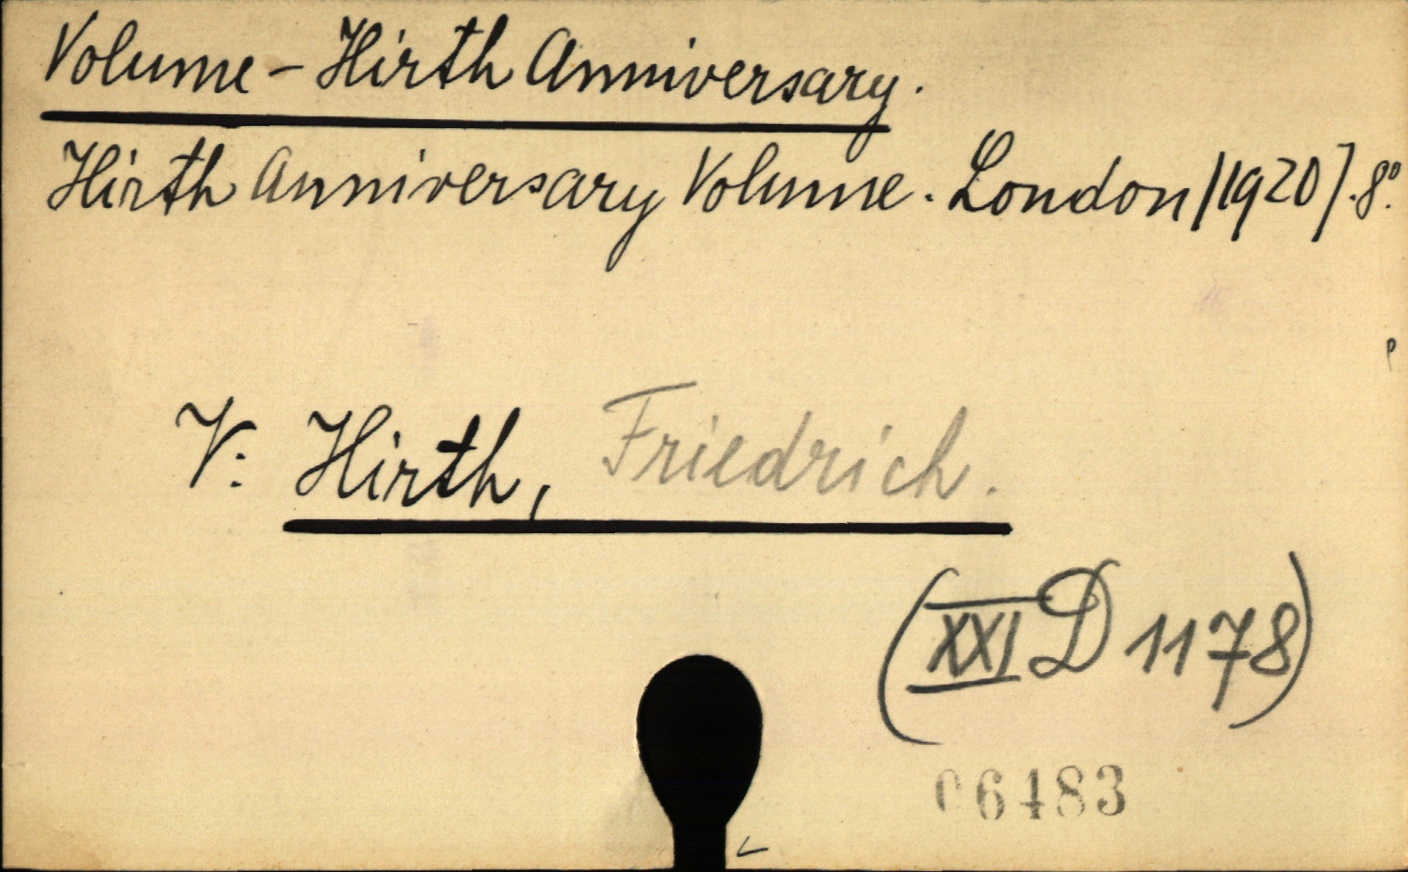 Volume - Hirth Anniversary.
Hirth Anniversary Volume. London [1920]. 8º.
V: Hirth, Friedrich.
(XXI D 1178)
06483